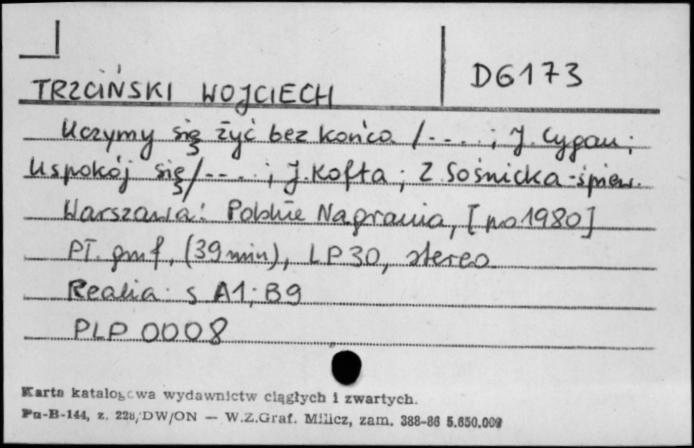 D6173
TRZCIŃSKI WOJCIECH
Uczymy się żyć bez końca /----; J. Cygan;
Uspokój się/----; J. Kofta; Z Sośnicka-śpiew.
Warszawa: Polskie Nagrania, [po 1980]
PŁ. gmf, (39 min), LP30, stereo
Realia: s A1; B9
PLP 0008
Karta katalogowa wydawnictw ciągłych i zwartych.
Pu-B-144, z. 228/DW/ON — W.Z.Graf. Milicz, zam. 388-86 5.650.000